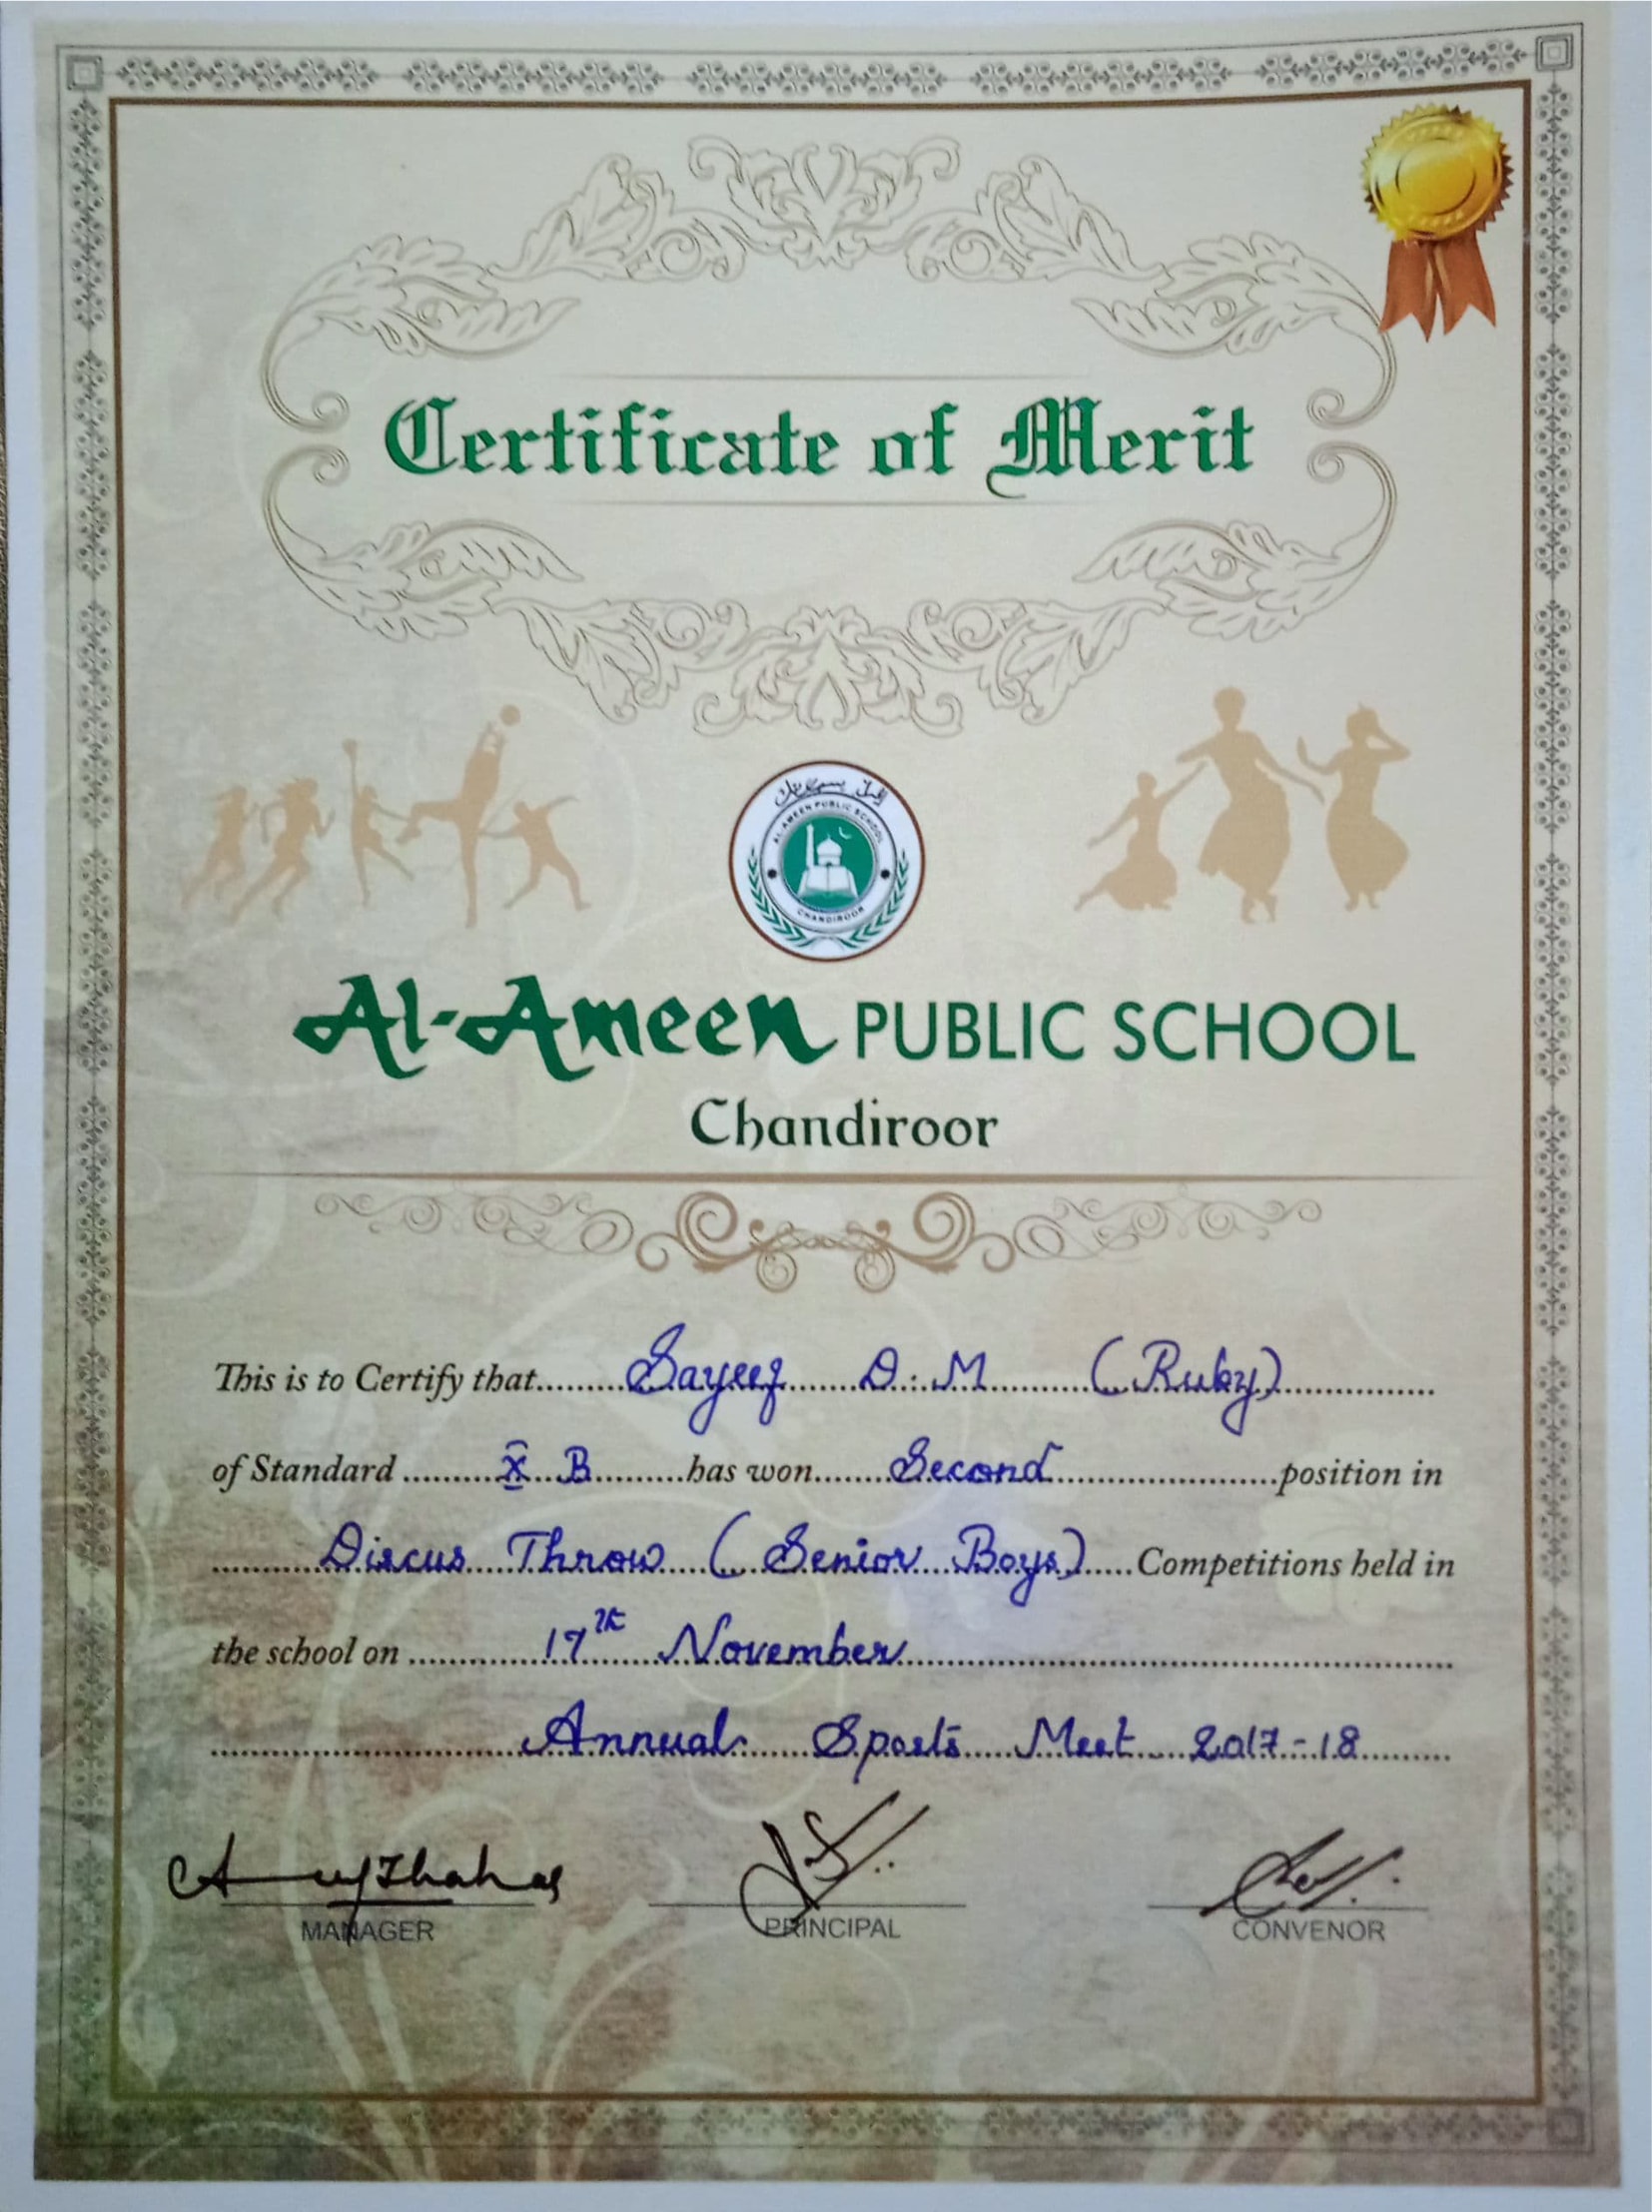 Certificate of Merit
AL-AMEEN PUBLIC SCHOOL
CHANDIROOR
Al-Ameen PUBLIC SCHOOL
Chandiroor
This is to Certify that........Sayeef.......D.M..........(Ruby)................
of Standard..........X B.........has won.......Second.......................position in
............Discus Throw (Senior Boys).....Competitions held in
the school on.............17th November.......................................................
............................Annual Sports Meet 2017-18.........
MANAGER PRINCIPAL CONVENOR